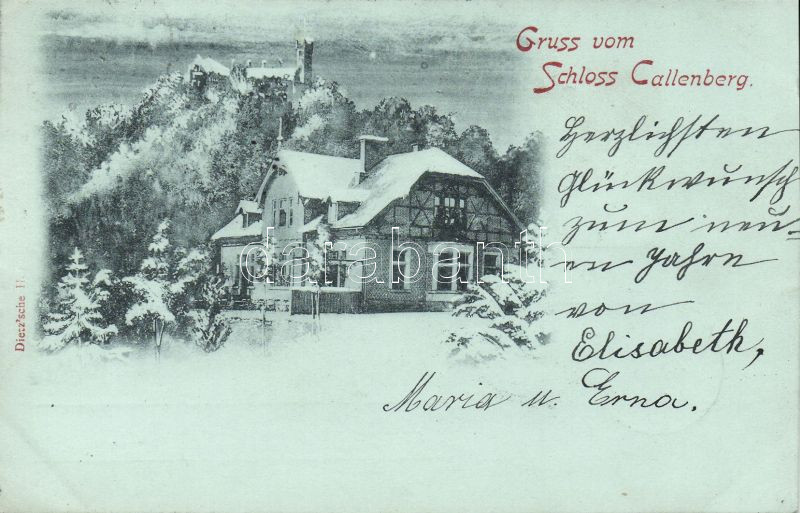 Gruss vom
Schloss Callenberg.
Herzlichsten
Glückwunsch
zum neu=
en Jahre
von
Elisabeth,
Maria u. Erna.
darabanth
Dietz'sche H